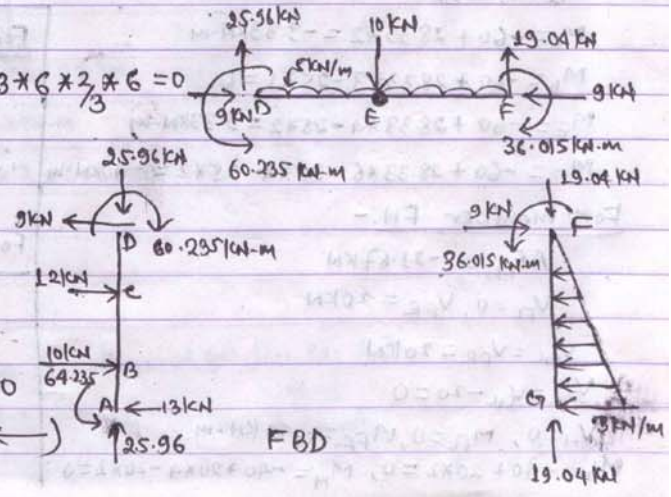 25.96KN
10KN
19.04KN
3*6*2/3*6=0
5KN/m
D
E
F
9KN
9KN
60.235KN-m
36.015KN.m
25.96KN
9KN
D
60.235KN-m
12KN
C
10KN
B
64.235
A
13KN
25.96
FBD
19.04KN
9KN
F
36.015KN.m
G
3KN/m
19.04KN
0